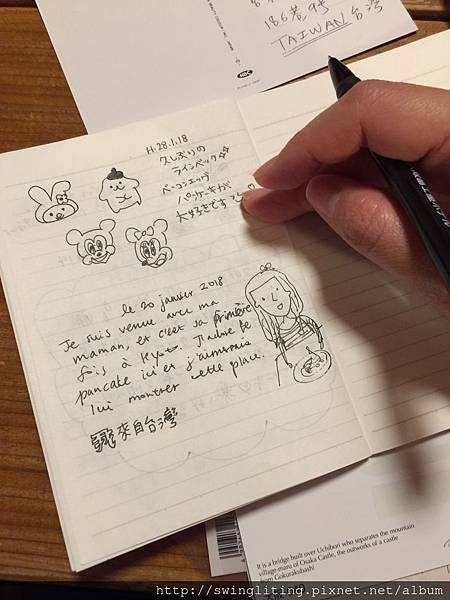 186巷9号
TAIWAN 台灣
H.28.1.18
久しぶりの
ラインパック
ベーコンエッグ
パンケーキが
大好きです
le 20 janvier 2018
Je suis venue avec ma
maman, et c'est sa première
fois à Kyoto. J'adore le
pancake ici et j'aimerais
lui montrer cette place.
來自台灣
It is a bridge built over Uchibori who separates the mountain
village-maru of Osaka Castle, the outworks of a castle
from Gokurakubashi
http://swingliting.pixnet.net/album